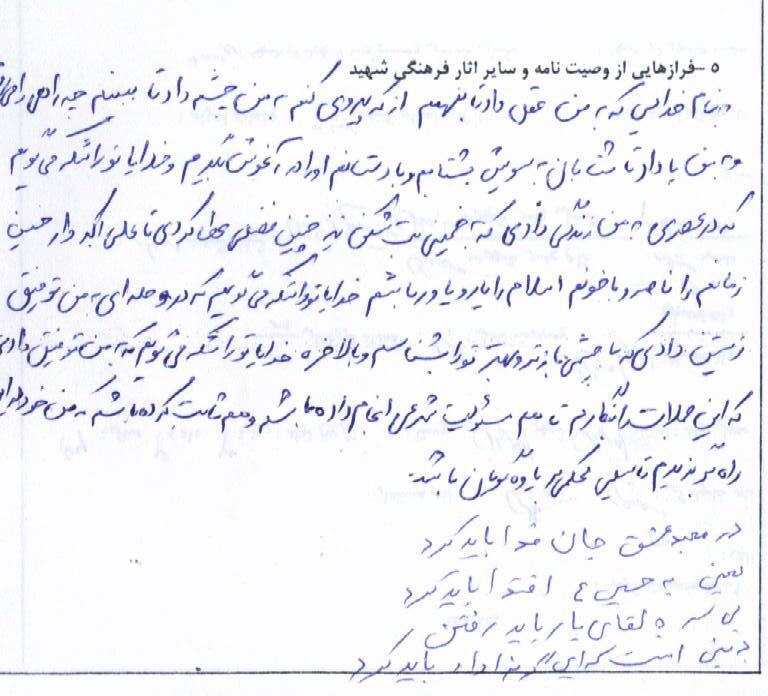 ۵-فرازهایی از وصیت نامه و سایر اثار فرهنگی شهید
بنام خدایی که به من عقل داد تا بفهمم از که پیروی کنم به من چشم داد تا ببینم چه راهی را
و به من پا داد تا شتابان به سویش بشتابم و با دستانم او را در آغوش بگیرم و خدایا تو را شکر می گویم
که در عصری به من زندگی دادی که به خمینی بت شکن این چنین فضلی عطا کردی تا علی اکبر وار حسین
زمانم را ناصر و با خونم اسلام را یار و یاور باشم خدایا تو را شکر می گویم که در مرحله ای به من توفیق
زیستن دادی که با چشمی بازتر و بهتر تو را بشناسم و بالاخره خدایا تو را شکر می گویم که به من توفیق دادی
که این جملات را بنگارم تا هم مسئولیت شرعی انجام داده باشم و هم ثابت کرده باشم که من خود
راه تو گزیدم تا سیلی محکمی بر یاوه گویان باشد.
در معبد عشق جان فدا باید کرد
یعنی به حسین ع اقتدا باید کرد
بی سر به لقای یار باید رفتن
دینی است که این گونه ادا باید کرد